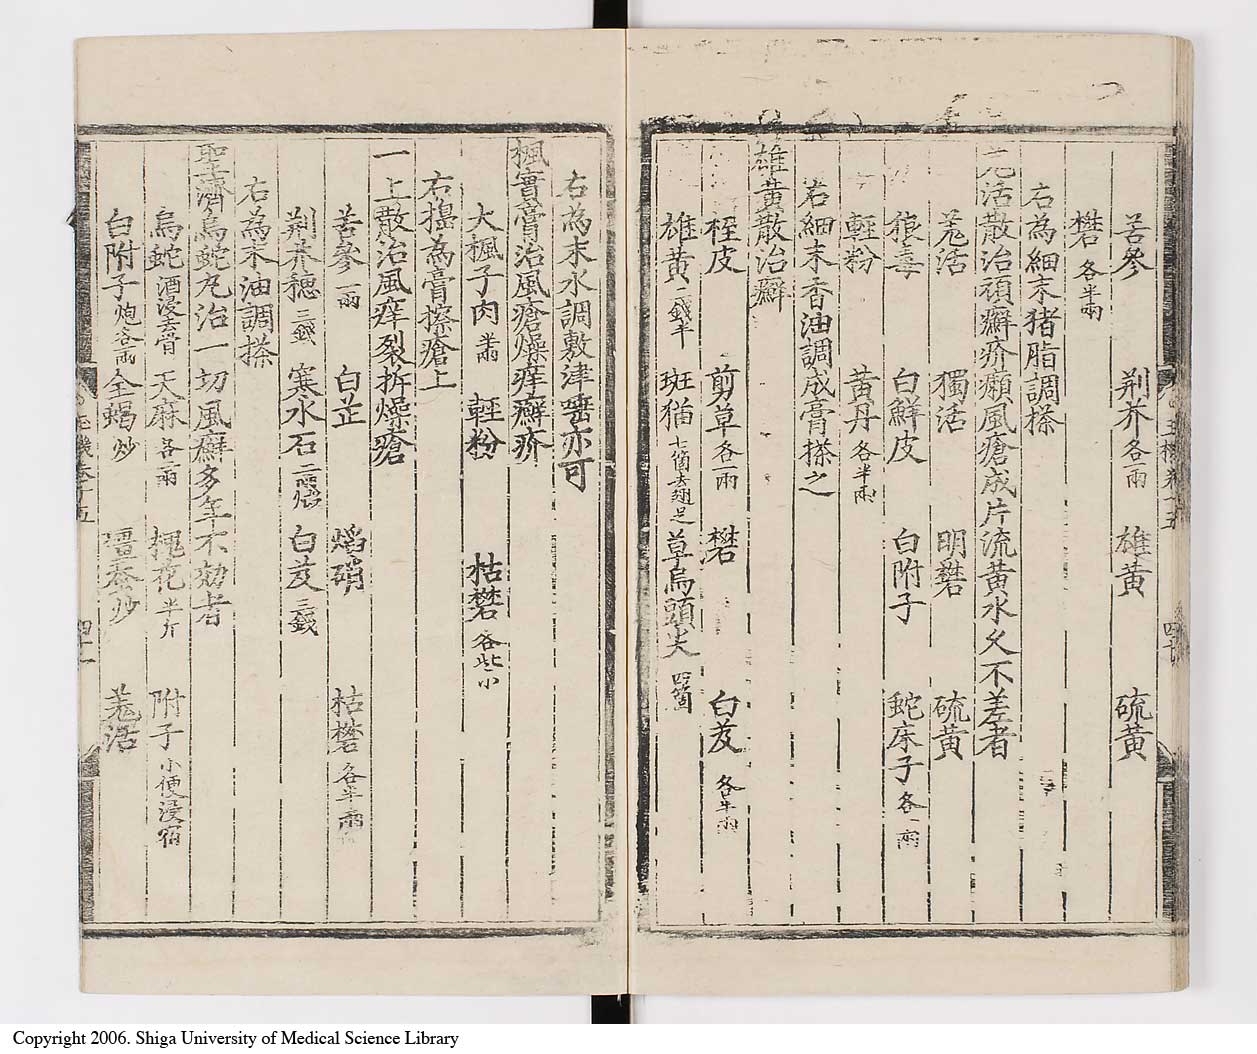 苦參 荆芥各一兩 雄黃 硫黃
礬各半兩
右為細末猪脂調搽
羌活散治頑癬疥癩風瘡成片流黃水久不差者
羗活 獨活 明礬 硫黃
狼毒 白鮮皮 白附子 蛇床子各一兩
輕粉 黃丹各半兩
右細末香油調成膏搽之
雄黃散治癬
枑皮 剪草各一兩 礬 白芨各半兩
雄黃二錢半 班猫七箇去翅足 草烏頭尖四箇
右為末水調敷津唾亦可
楓實膏治風瘡燥痒癬疥
大楓子肉半兩 輕粉 枯礬各些小
右搗為膏擦瘡上
一上散治風痒裂拆燥瘡
苦參一兩 白芷 焰硝 枯礬各半兩
荆芥穗三錢 寒水石二兩煅 白芨三錢
右為末油調搽
聖濟烏蛇丸治一切風癬多年不効者
烏蛇酒浸去骨 天麻各二兩 槐花半斤 附子小便浸宿
白附子炮各兩 全蝎炒 殭蚕炒 羗活
玉機卷十五 四十一
Copyright 2006. Shiga University of Medical Science Library